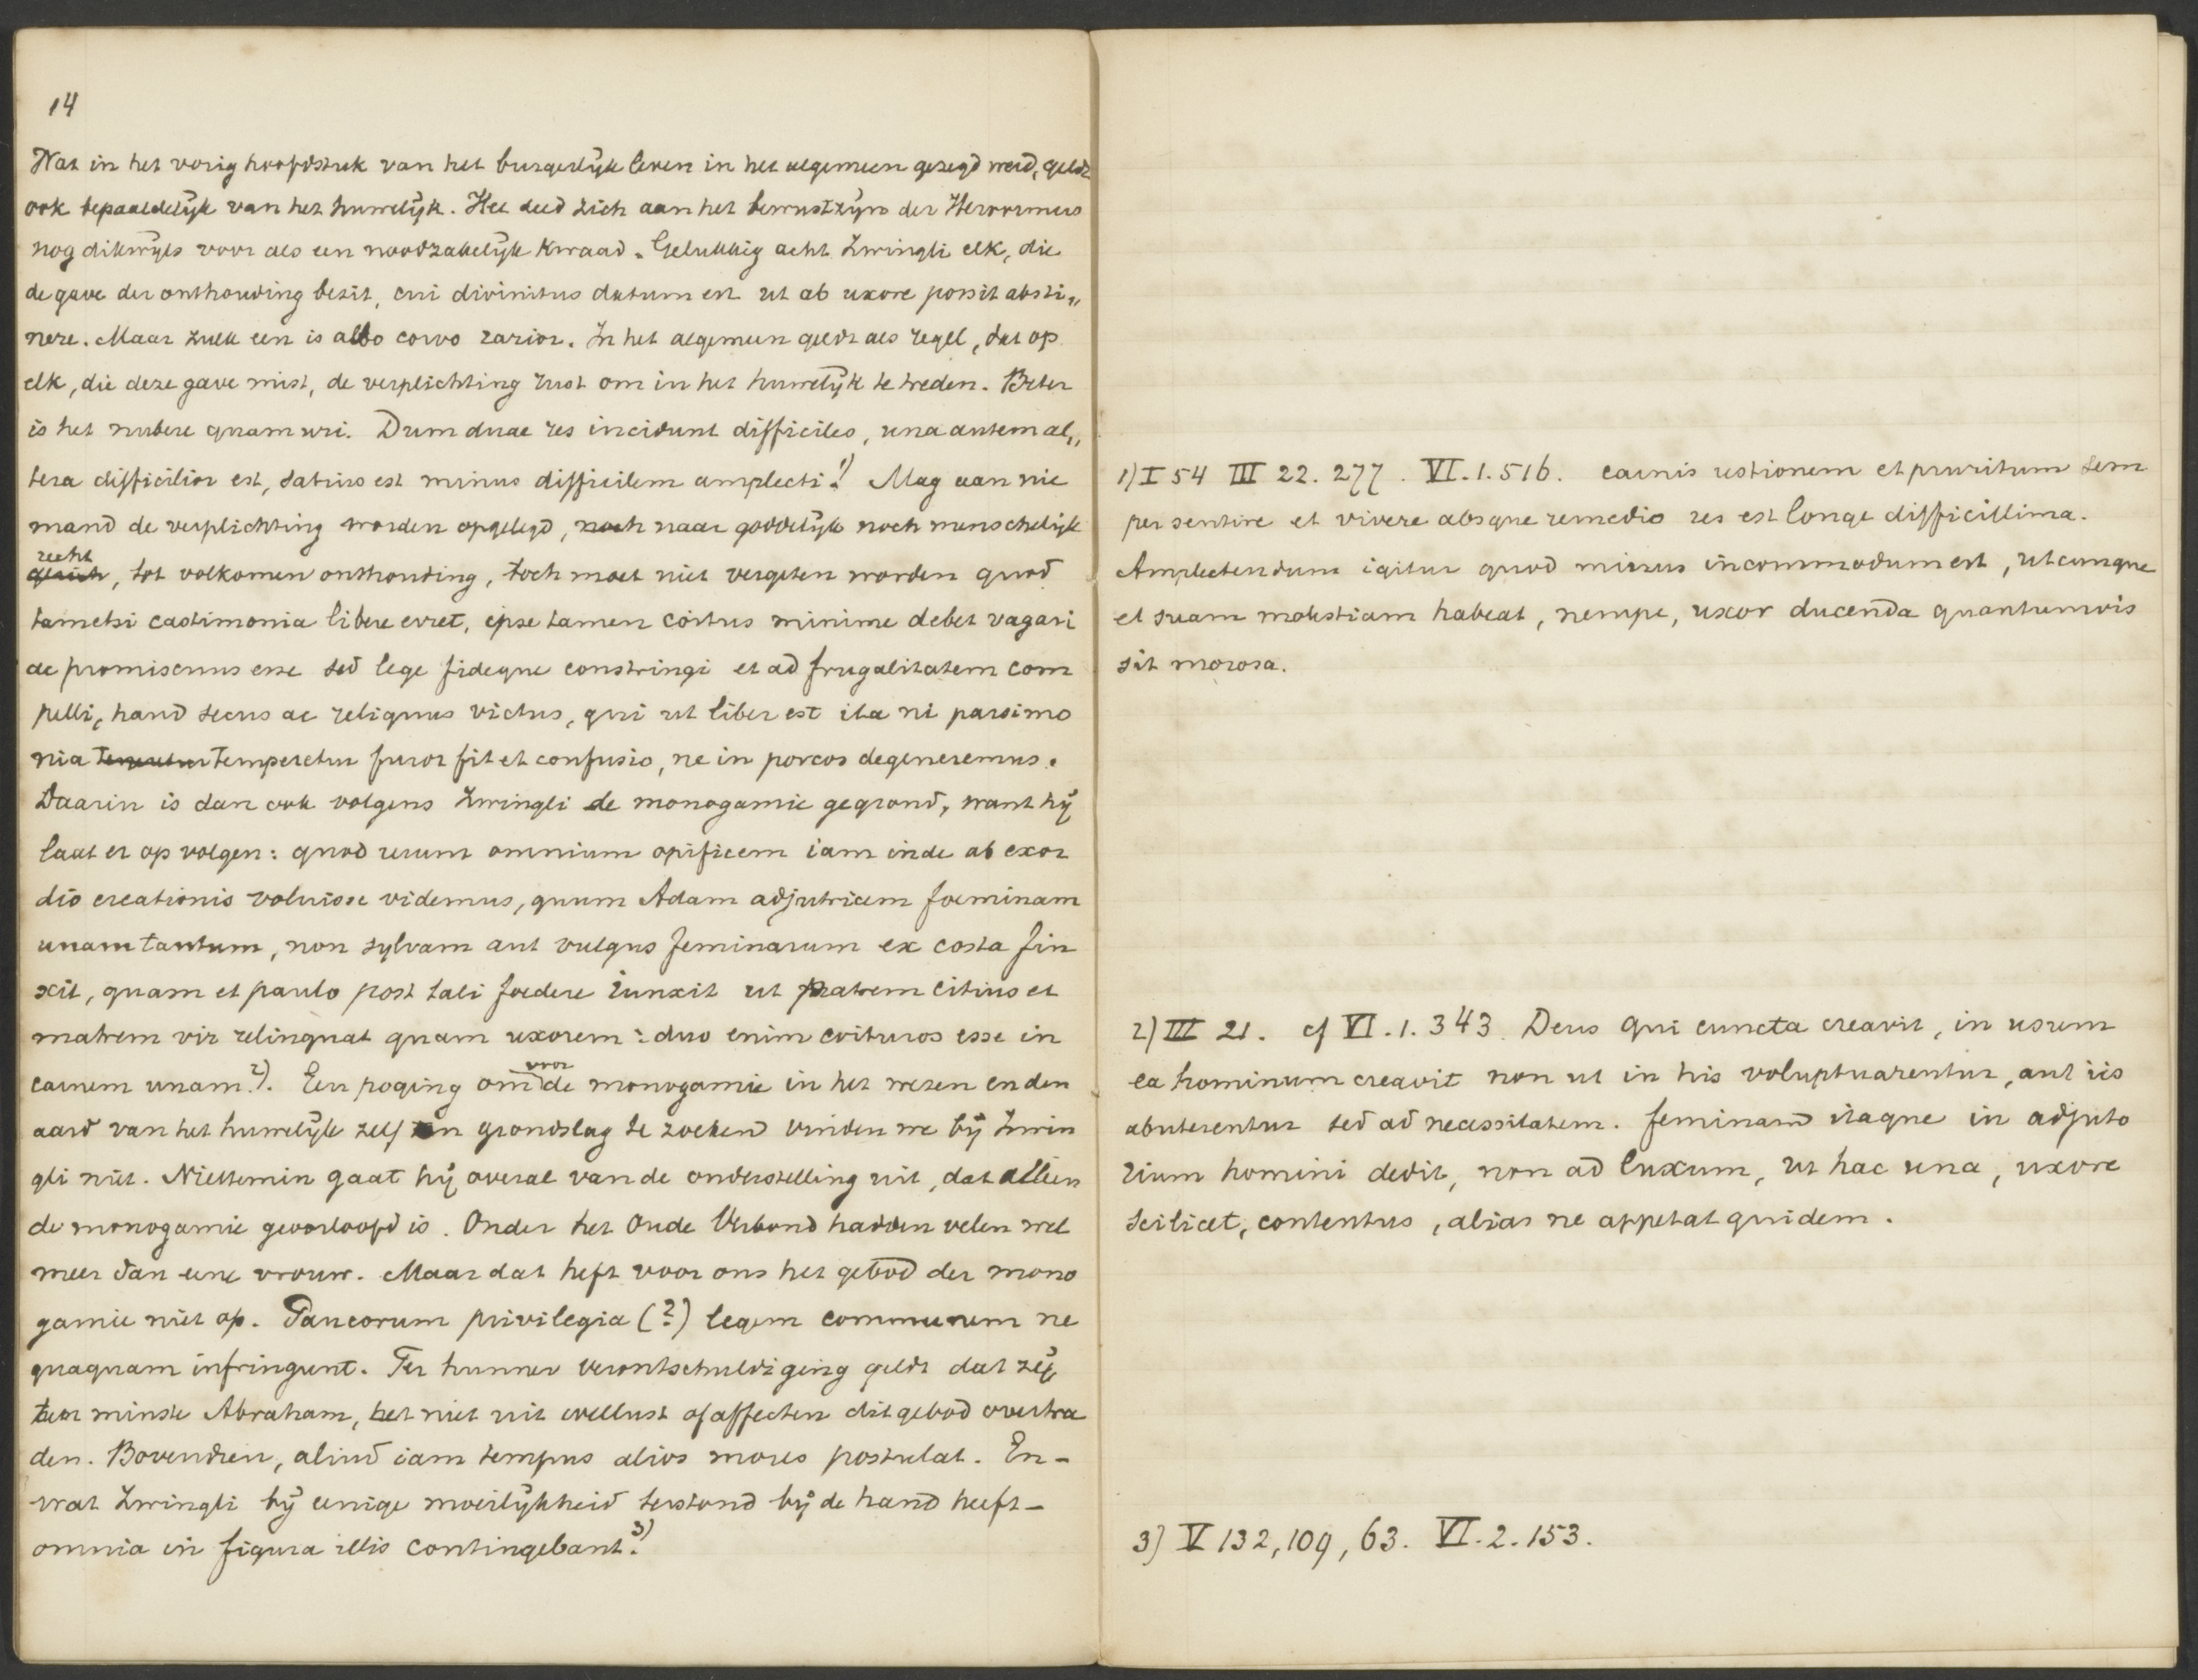 14
Wat in het vorig hoofdstuk van het burgerlijk leven in het algemeen gezegd werd, geldt
ook bepaaldelijk van het huwelijk. Het deed zich aan het bewustzijn der Hervormers
nog dikwijls voor als een noodzakelijk kwaad. Gelukkig acht Zwingli elk, die
de gave der onthouding bezit, cui divinitus datum est ut ab uxore possit absti„
nere. Maar zulk een is albo corvo rarior. In het algemeen geldt als regel, dat op
elk, die deze gave mist, de verplichting rust om in het huwelijk te treden. Beter
is het nubere quam uri. Dum duae res incidunt difficiles, una autem al„
tera difficilior est, satius est minus difficilem amplecti.1) Mag aan nie
mand de verplichting worden opgelegd, noch naar goddelijk noch menschelijk
recht
, tot volkomen onthouding, toch moet niet vergeten worden quod
tametsi castimonia libere erret, ipse tamen coitus minime debet vagari
ac promiscuus esse sed lege fideque constringi et ad frugalitatem com
pelli, haud secus ac reliquus victus, qui ut liber est ita ni parsimo
nia temperetur furor fit et confusio, ne in porcos degeneremus.
Daarin is dan ook volgens Zwingli de monogamie gegrond, want hij
laat er op volgen: quod rerum omnium opificem iam inde ab exor
dio creationis voluisse videmus, quum Adam adjutricem foeminam
unam tantum, non sylvam aut vulgus feminarum ex costa fin
xit, quam et paulo post tali foedere iunxit ut patrem citius et
matrem vir relinquat quam uxorem: duo enim coituros esse in
carnem unam.2) Een poging om voor de monogamie in het wezen en den
aard van het huwelijk zelf een grondslag te zoeken vinden we bij Zwin
gli niet. Niettemin gaat hij overal van de onderstelling uit, dat alleen
de monogamie geoorloofd is. Onder het Oude Verbond hadden velen wel
meer dan eene vrouw. Maar dat heft voor ons het gebod der mono
gamie niet op. Paucorum privilegia (?) legem communem ne
quaquam infringunt. Ter hunner verontschuldiging geldt dat zij
ten minste Abraham, het niet uit wellust of affecten dit gebod overtra
den. Bovendien, aliud iam tempus alios mores postulat. En -
wat Zwingli bij eenige moeilijkheid terstond bij de hand heeft -
omnia in figura illis contingebant.3)
1) I 54 III 22. 277. VI. 1. 516. carnis ustionem et pruritum sem
per sentire et vivere absque remedio res est longe difficillima.
Amplectendum igitur quod minus incommodum est, utcunque
et suam molestiam habeat, nempe, uxor ducenda quantumvis
sit morosa.
2) III 21. cf VI. 1. 343. Deus qui cuncta creavit, in usum
ea hominum creavit non ut in his voluptuarentur, aut iis
abuterentur sed ad necessitatem. feminam itaque in adjuto
rium homini dedit, non ad luxum, ut hac una, uxore
scilicet, contentus, alias ne appetat quidem.
3) V 132, 109, 63. VI. 2. 153.